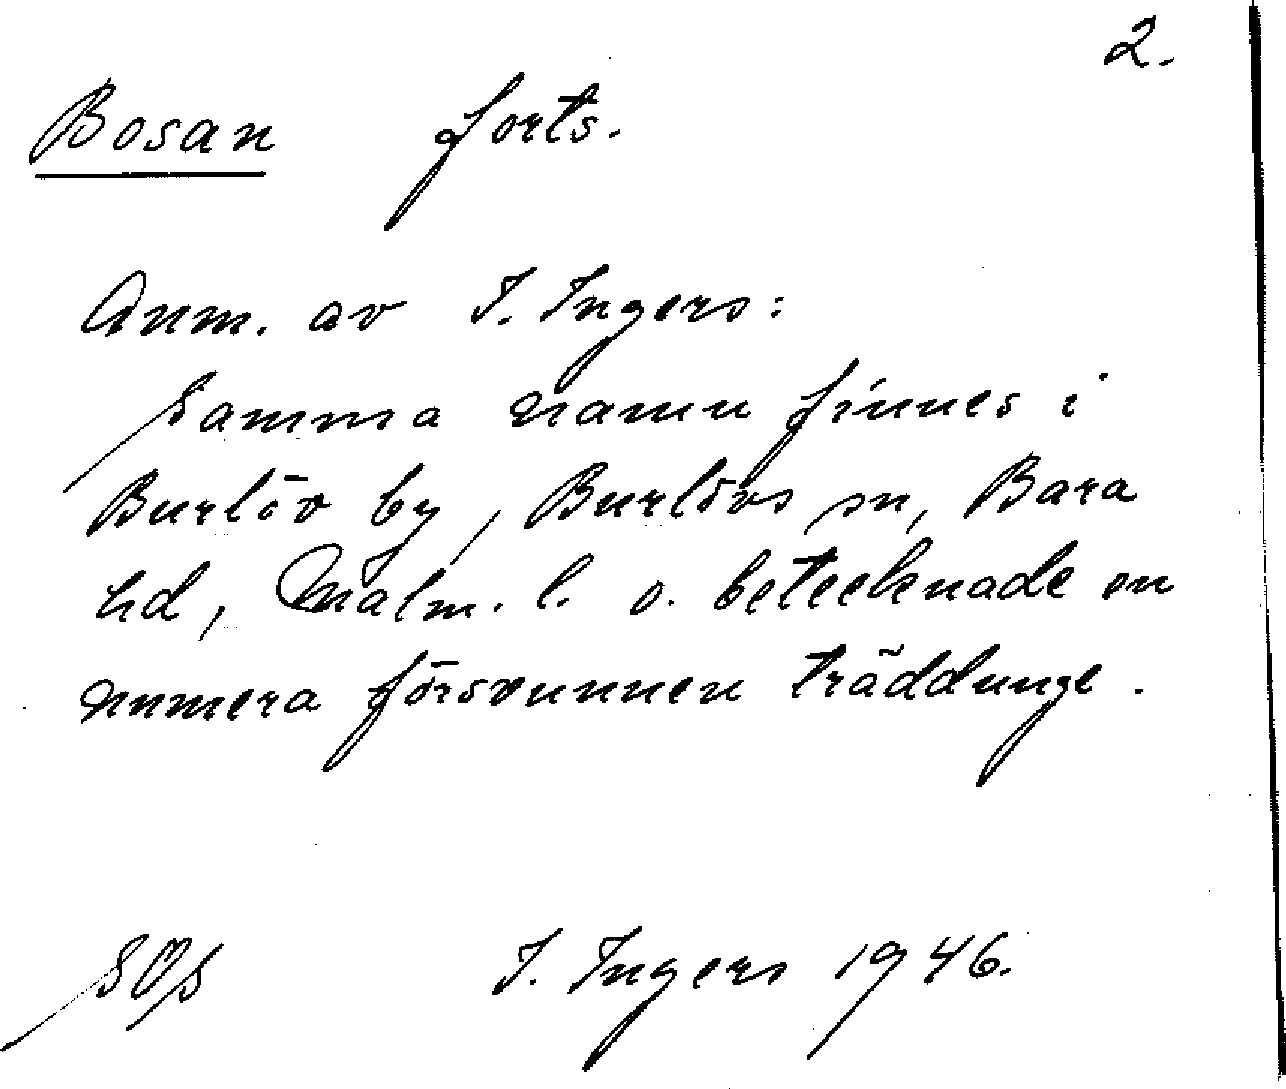 2.
Bosan forts.
Anm. av I. Ingers:
Samma namn finnes i
Burlöv by, Burlövs sn, Bara
hd, Malm. l. o. betecknade en
numera försvunnen träddunge.
I. Ingers 1946.